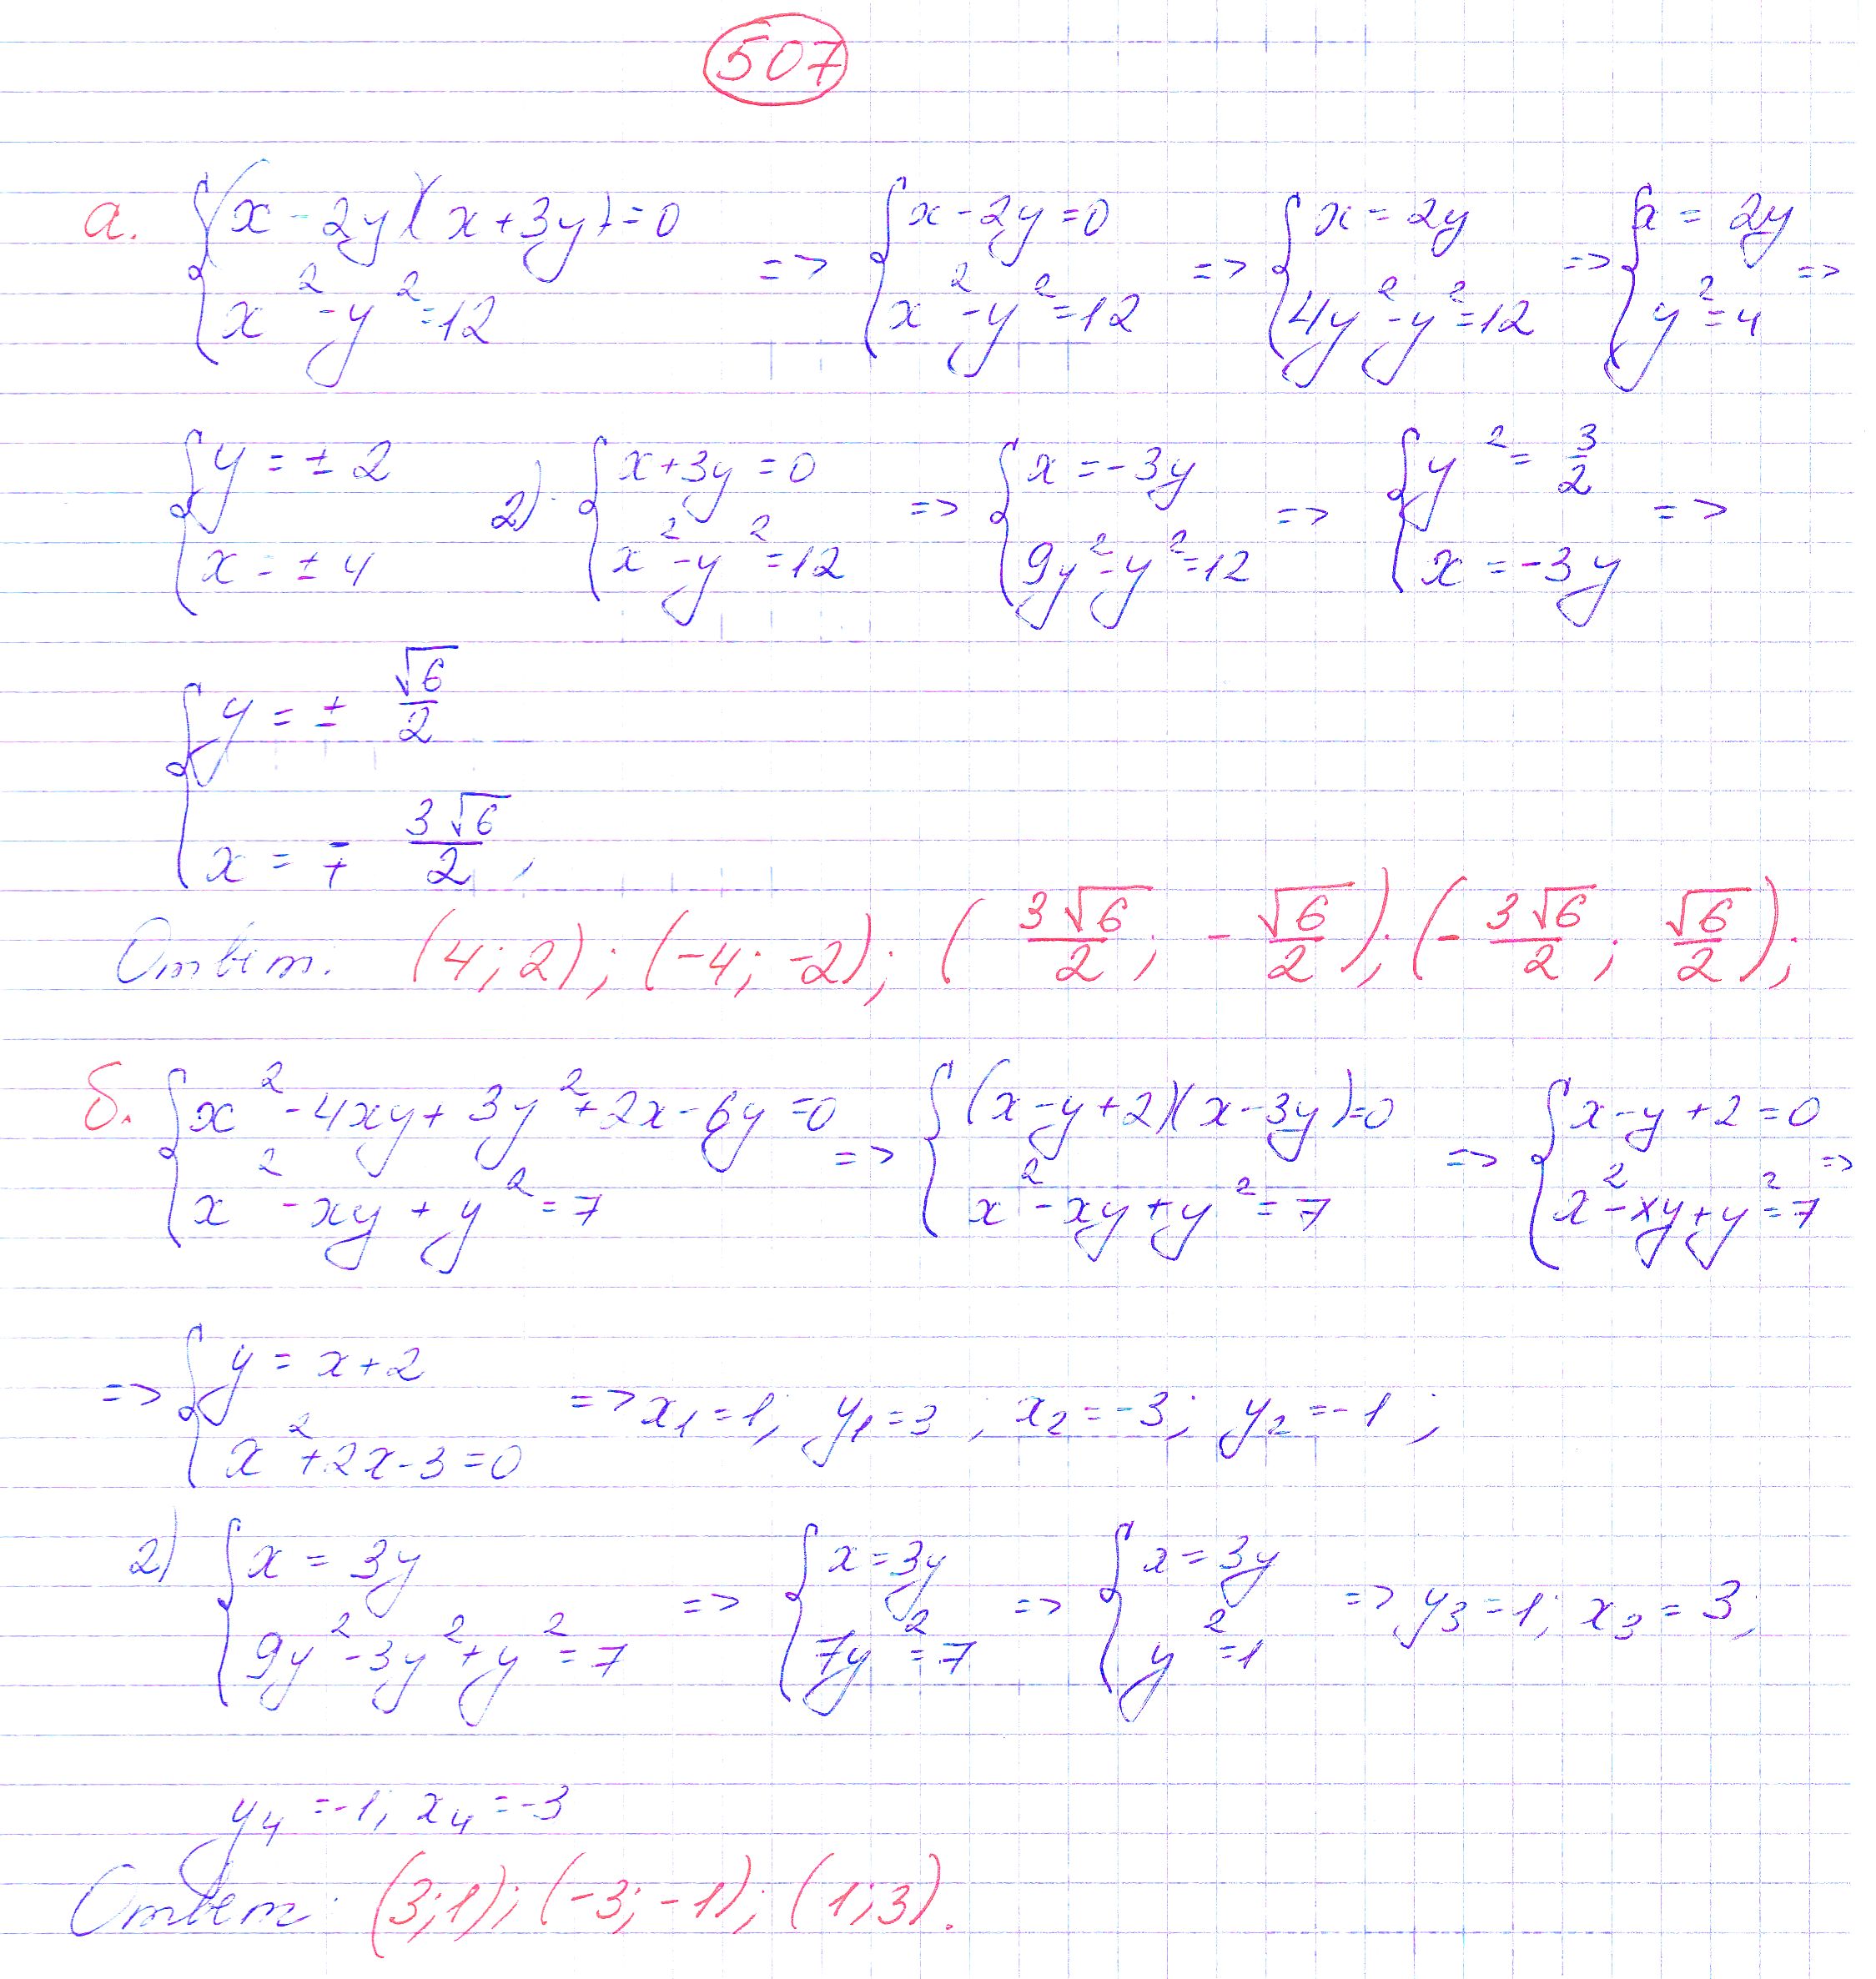 507
а. { (x - 2y)(x + 3y) = 0 ; x² - y² = 12 => { x - 2y = 0 ; x² - y² = 12 => { x = 2y ; 4y² - y² = 12 => { x = 2y ; y² = 4 =>
{ y = ± 2 ; x = ± 4 2) { x + 3y = 0 ; x² - y² = 12 => { x = -3y ; 9y² - y² = 12 => { y² = 3/2 ; x = -3y =>
{ y = ± √6/2 ; x = ∓ 3√6/2 ,
Ответ: (4; 2); (-4; -2); (3√6/2; -√6/2); (-3√6/2; √6/2);
б. { x² - 4xy + 3y² + 2x - 6y = 0 ; x² - xy + y² = 7 => { (x - y + 2)(x - 3y) = 0 ; x² - xy + y² = 7 => { x - y + 2 = 0 ; x² - xy + y² = 7 =>
=> { y = x + 2 ; x² + 2x - 3 = 0 => x₁ = 1; y₁ = 3; x₂ = -3; y₂ = -1;
2) { x = 3y ; 9y² - 3y² + y² = 7 => { x = 3y ; 7y² = 7 => { x = 3y ; y² = 1 => y₃ = 1; x₃ = 3;
y₄ = -1, x₄ = -3
Ответ: (3; 1); (-3; -1); (1; 3).